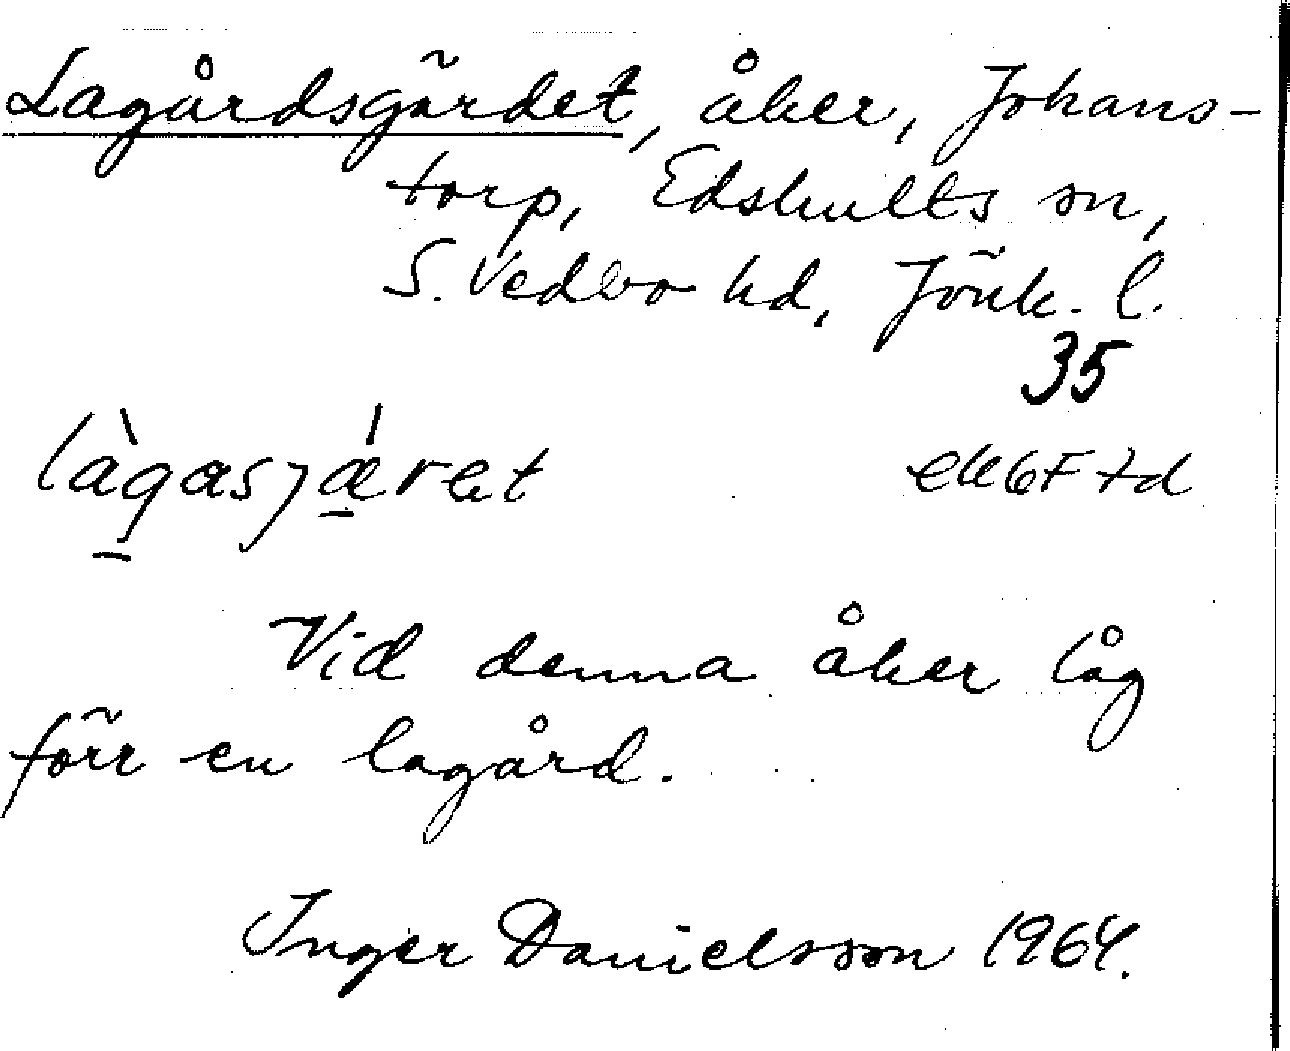 Lagårdsgärdet, åker, Johans-
torp, Edshults sn,
S. Vedbo hd, Jönk. l.
35
làgasjǽret
ek 6F 7d
Vid denna åker låg
förr en lagård.
Inger Danielsson 1964.